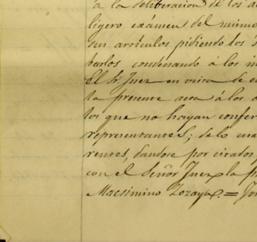 á la deliberacion de los a
ligero exámen del mismo
sus artículos pidiendo los s
barlos condenando á los in
el Sr Juez en vista de e
la presente acta á los a
los que no hayan confer
representantes; de lo cual
rentes, dandose por citados
con el Señor Juez la p
Macsimino Lozaya. = Jo